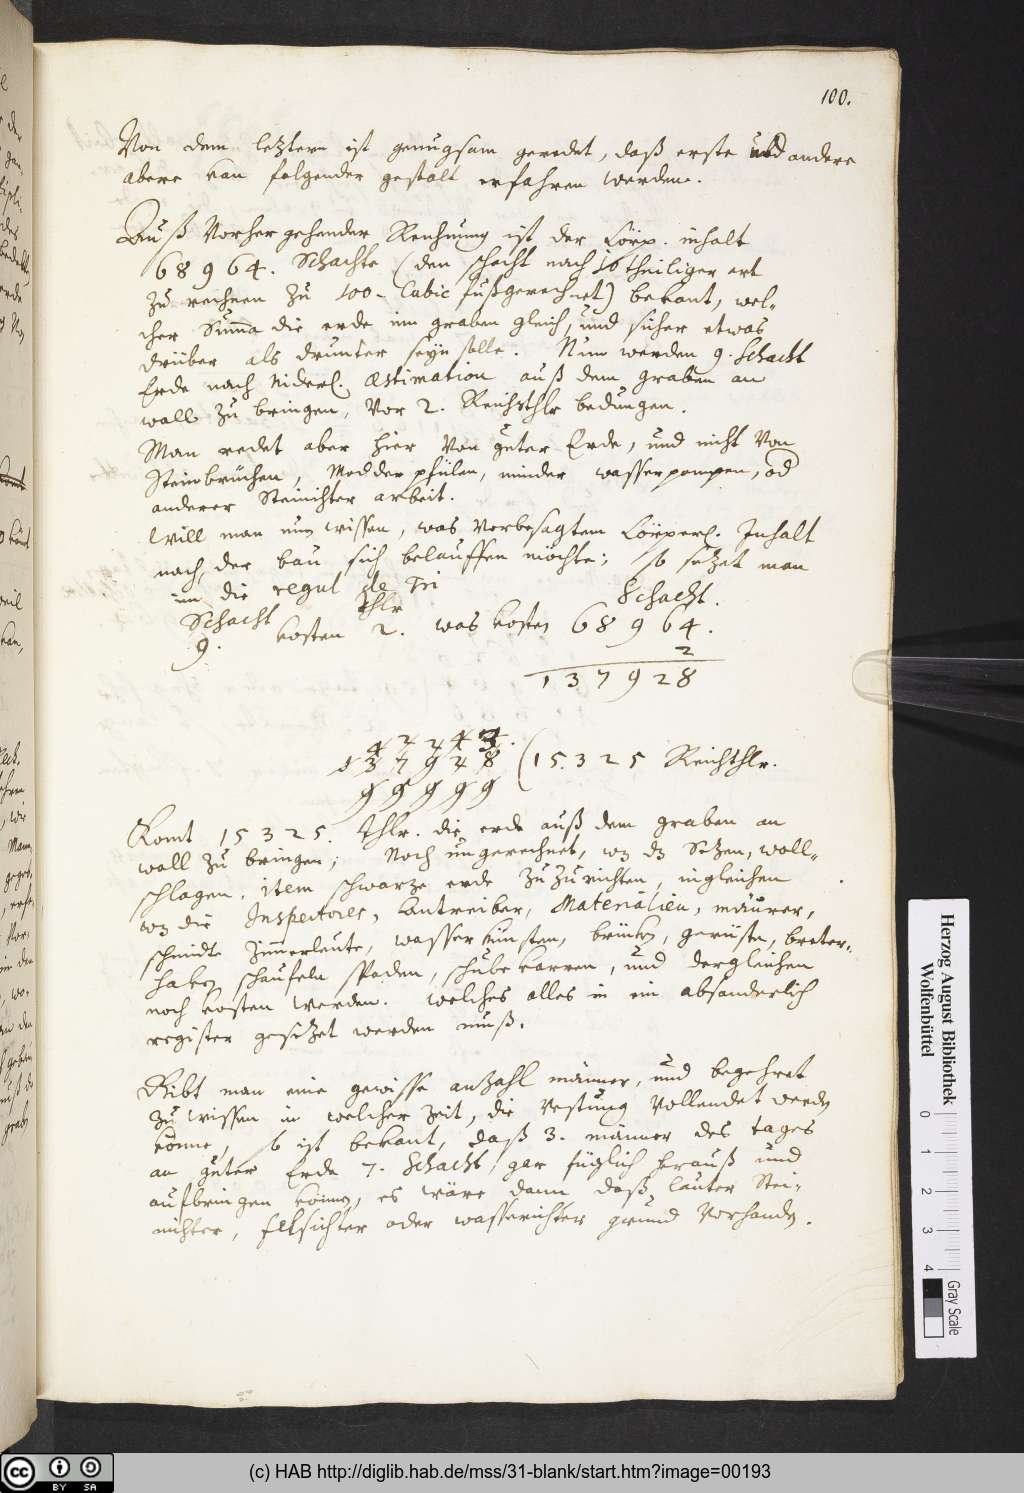 100.
Von dem letztern ist genugsam geredet, daß erste und andere
abere kan folgender gestalt erfahren werden.
Auß Vorhergehender Rechnung ist der Cörp. inhalt
68964. Schachte (den schacht nach 10theiliger art
zu rechnen zu 100- Cubic fußgerechnet) bekant, wel-
cher Suma die erde im graben gleich, und sicher etwas
drüber als drunter seyn solle. Nun werden 9. Schacht
Erde nach Niderl. æstimation auß dem graben an
wall zu bringen, Vor 2. Reichsthlr bedungen.
Man redet aber hier Von guter Erde, und nicht Von
Steinbrüchen, Modderpfülen, minder wasserpompen, od
anderer Steinichter arbeit.
Will man nun wissen, was Vorbesagtem Cörperl. Inhalt
nach, der bau sich belauffen möchte; so setzet man
in die regul de Tri
Schacht thlr Schacht.
9. kosten 2. was kosten 68964.
2
137928
4 2 2 4 3.
1 3 7 9 2 8 (15325 Reichthlr.
9 9 9 9 9
Komt 15325. Thlr. die erde auß dem graben an
wall zu bringen; Noch ungerechnet, wz dz Setzen, woll-
schlagen, item schwarze erde zuzurichten, ingleichen
wz die Inspectores, Antreiber, Materialien, mäurer,
schmidte Zimerleute, wasserkünsten, brücken, gerüste, breter,
haken schaufeln Spaden, schubkarren, und dergleichen
noch kosten werden. welches alles in ein absonderlich
register gesetzet werden muß.
Gibt man eine gewisse anzahl männer, und begehret
zu wissen in welcher zeit, die Vestung Vollendet werden
könne, so ist bekant, daß 3. männer des tages
an guter Erde 7. Schacht, gar füglich herauß und
aufbringen können, es wäre dann daß lauter Stei-
nichter, felssichter oder wasserichter grund Vorhanden.
Herzog August Bibliothek
Wolfenbüttel
0 1 2 3 4
Gray Scale
cc BY SA
(c) HAB http://diglib.hab.de/mss/31-blank/start.htm?image=00193